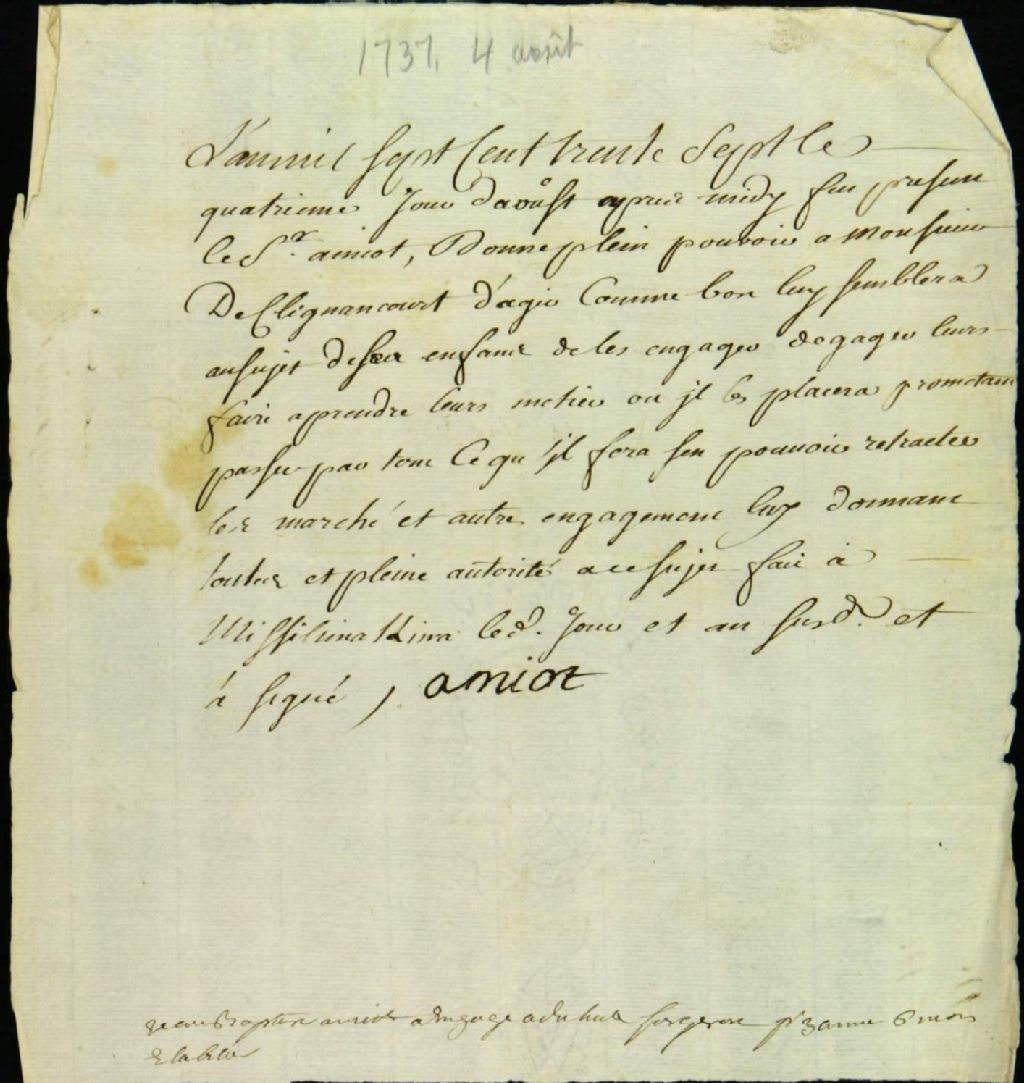 1737. 4 août
L'an mil sept Cent trente Sept le
quatrieme Jour d'aoust apres midy fut present
le Sr. amiot, Donne plein pouvoir a monsieur
De Clignancourt d'agir Comme bon luy semblera
au sujet de ses enfant de les engager degager leurs
faire aprendre leurs metier ou jl les placera prometant
passer par tout Ce qu'jl fera sen pouvoir retracter
les marché et autre engagement luy donnant
toutes et pleine autorité a ce sujet fait à
Missilimakima led. Jour et an susd. et
à signé, amiot
Jean Baptiste amiot engage a forgeron pr 3 anne 6 mois